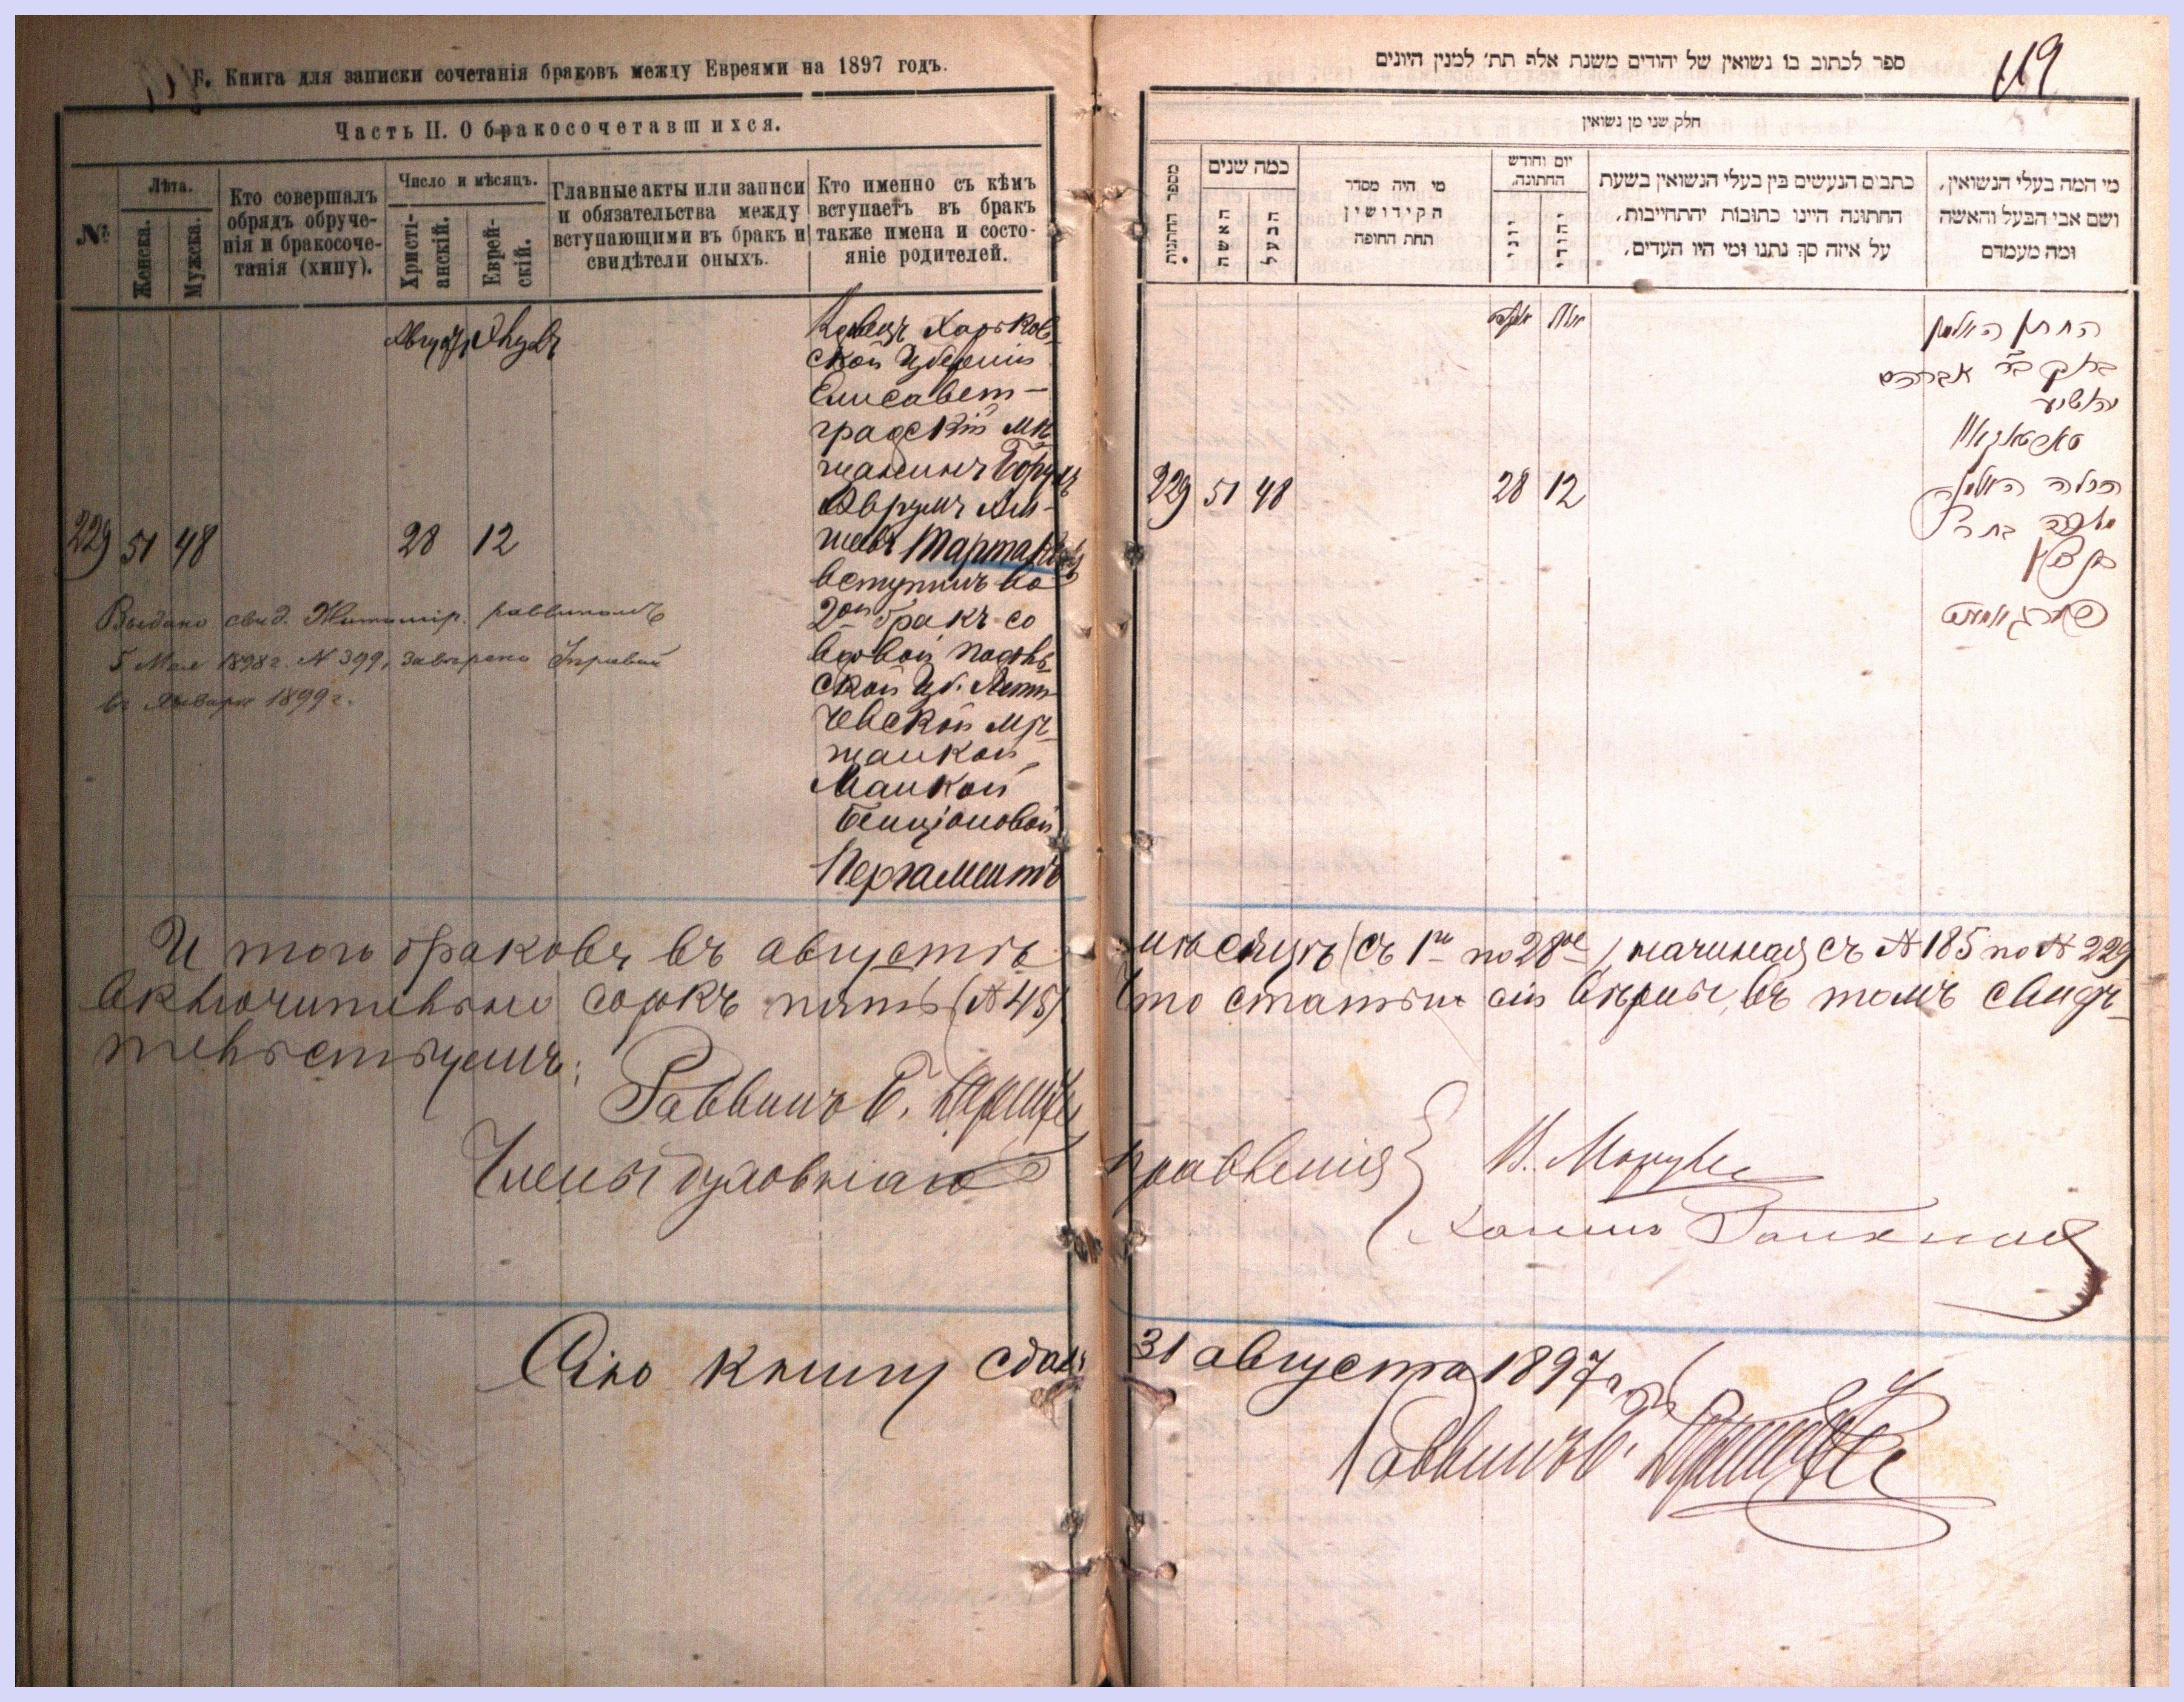 Б. Книга для записки сочетанія браковъ между Евреями на 1897 годъ.
Часть II. О бракосочетавшихся.
№
Лѣта.
Женска.
Мужска.
Кто совершалъ
обрядъ обруче-
нія и бракосоче-
танія (хипу).
Число и мѣсяцъ.
Христі-
анскій.
Еврей-
скій.
Главные акты или записи
и обязательства между
вступающими въ бракъ и
свидѣтели оныхъ.
Кто именно съ кѣмъ
вступаетъ въ бракъ
также имена и состо-
яніе родителей.
Августъ
Харьков-
ской Губерніи
Елисавет-
градскій мѣ-
щанинъ Борухъ
Аврумъ
вступилъ во
2ой бракъ со
вдовой Подоль-
ской Губ. Лети-
чевской мѣ-
щанкой
Манкой
Бенціоновой
Пергаментъ
229 51 48 28 12
Выдано свид. Житомір. раввиномъ
5 Мая 1898 г. № 399, завѣрено Управой
въ Январѣ 1899 г.
ספר לכתוב בו נשואין של יהודים משנת אלף תת׳ למנין היונים
119
חלק שני מן נשואין
מספר החתונות
כמה שנים
האשה
הבעל
מי היה מסדר
הקידושין
תחת החופה
יום וחודש
החתונה.
יוני
יהודי
כתבים הנעשים בין בעלי הנשואין בשעת
החתונה היינו כתובות יהתחייבות,
על איזה סך נתנו ומי היו העדים,
מי המה בעלי הנשואין,
ושם אבי הבעל והאשה
ומה מעמדם
החתן האלמן
ברוך בר אברהם
229 51 48 28 12
הכלה האלמנה
И того браковъ въ августѣ мѣсяцѣ (съ 1го по 28ое), начиная съ № 185 по № 229
включительно сорокъ пять (№ 45). Что статьи сіи вѣрны, въ томъ свидѣ-
тельствуемъ:
Раввинъ
Члены духовнаго правленія
Сію книгу сдалъ 31 августа 1897 г.
Раввинъ